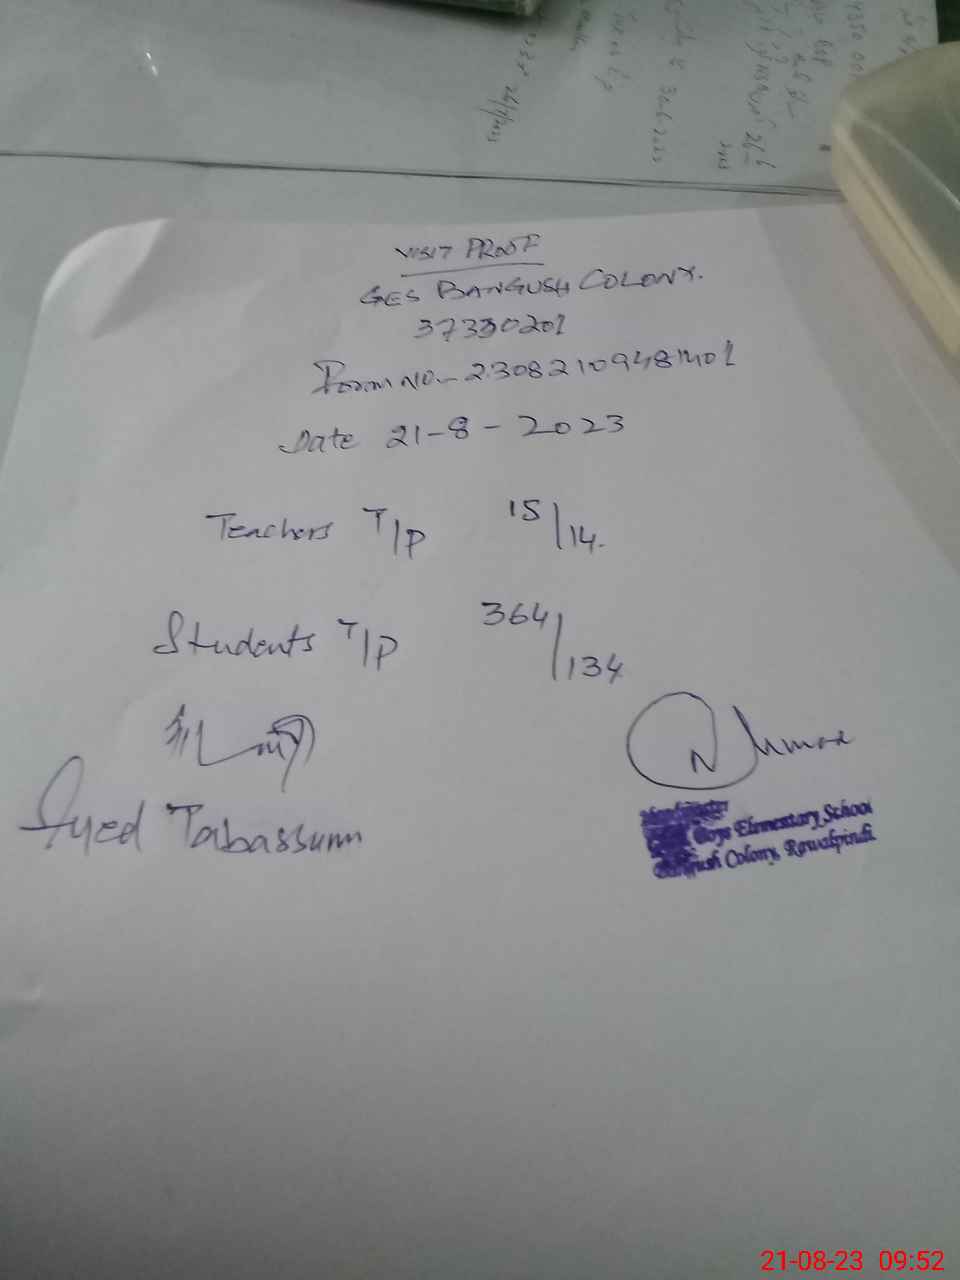 VISIT PROOF
GES BANGUSH COLONY.
37330201
Form NO.- 23082109481401
Date 21-8-2023
Teachers T/P 15/14.
Students T/P 364/134
Syed Tabassum
Boys Elementary School
Colony, Rawalpindi
21-08-23 09:52